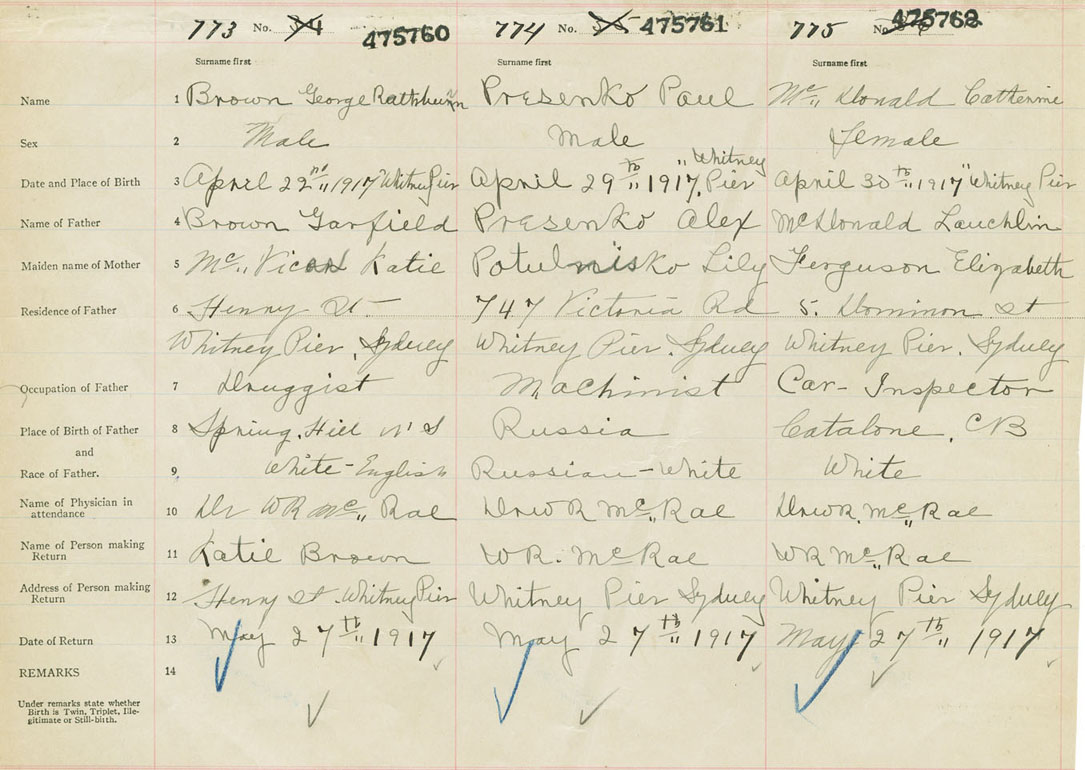 773 No. 475760 774 No. 475761 775 No. 475762
Surname first Surname first Surname first
Name 1 Brown George Rathburn Presenko Paul Mc Donald Catherine
Sex 2 Male Male Female
Date and Place of Birth 3 April 22nd 1917 " Whitney Pier April 29th 1917, " Whitney Pier April 30th 1917 " Whitney Pier
Name of Father 4 Brown Garfield Presenko Alex McDonald Lauchlin
Maiden name of Mother 5 Mc Vicar Katie Lily Ferguson Elizabeth
Residence of Father 6 Henry St 747 Victoria Rd 5. Dominion St
Whitney Pier, Sydney Whitney Pier, Sydney Whitney Pier, Sydney
Occupation of Father 7 Druggist Machinist Car-Inspector
Place of Birth of Father 8 Spring. Hill N S Russia Catalone, CB
and
Race of Father. 9 White-English Russian-White White
Name of Physician in attendance 10 Dr W R McRae Dr W R McRae Dr W R. McRae
Name of Person making Return 11 Katie Brown W R. McRae W R McRae
Address of Person making Return 12 Henry St. Whitney Pier Whitney Pier Sydney Whitney Pier Sydney
Date of Return 13 May 27th 1917 May 27th 1917 May 27th 1917
REMARKS 14
Under remarks state whether
Birth is Twin, Triplet, Ille-
gitimate or Still-birth.